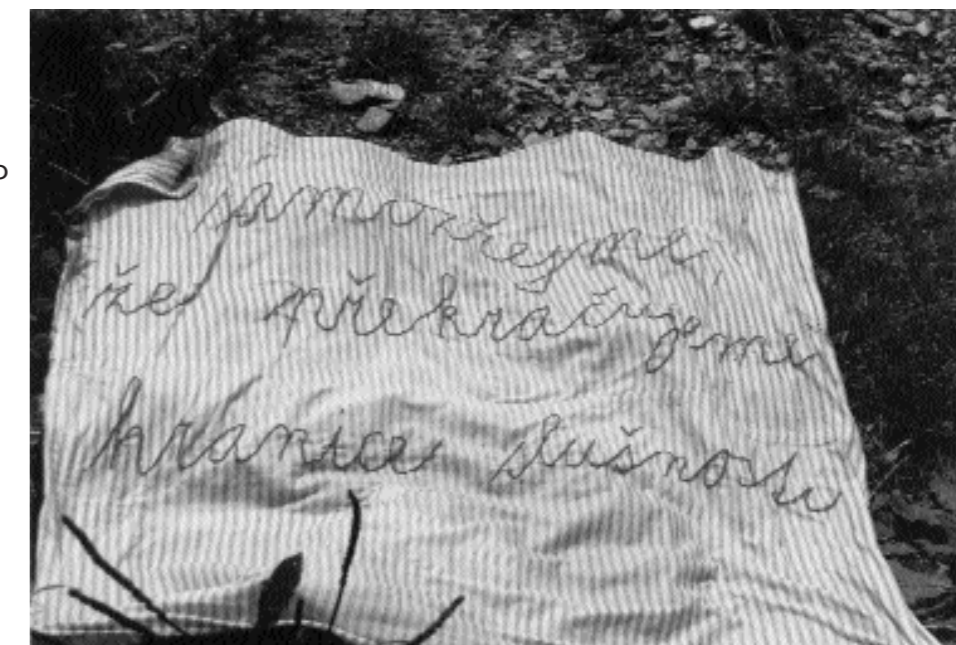 samozřejmě,
že překračujeme
hranice slušnosti